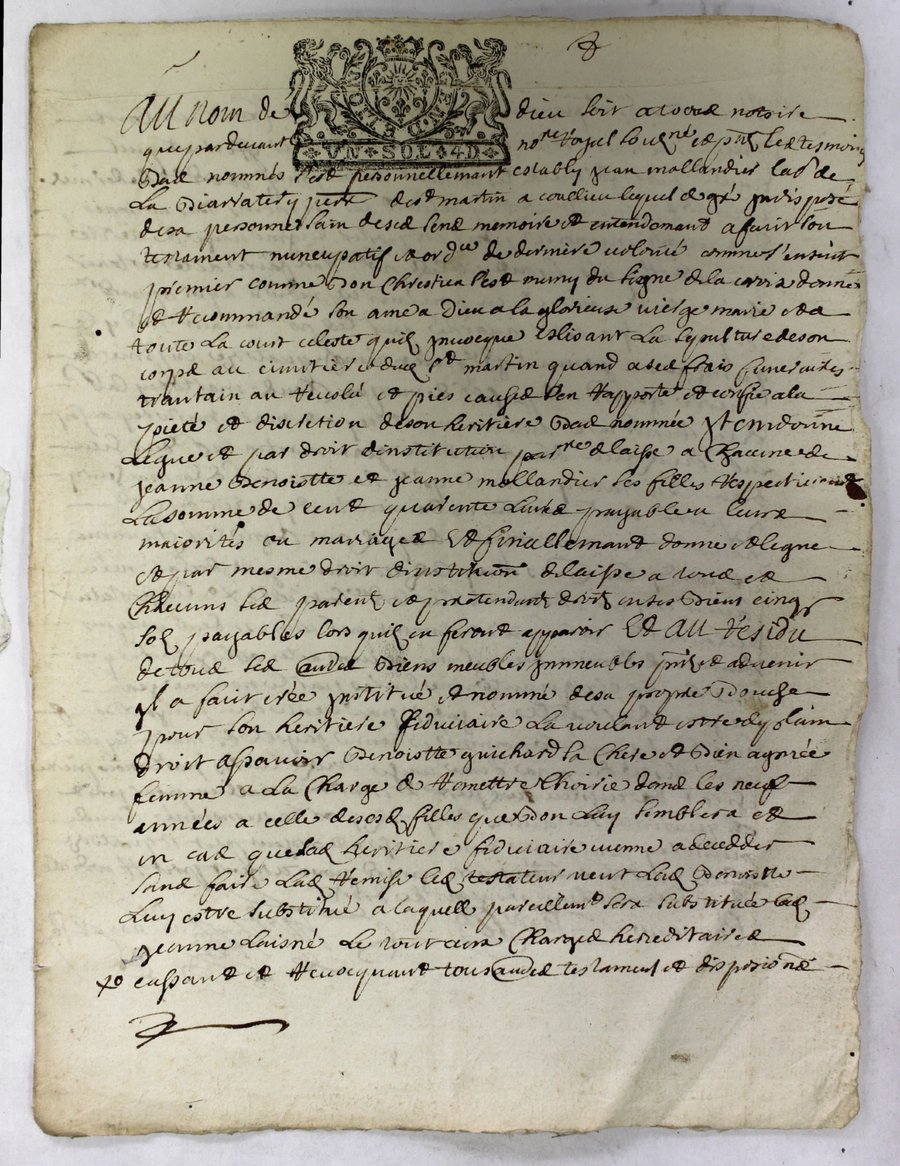 Au nom de dieu soit a tous notoire
que pardevant no.re Royal sousné et p.ntz les tesmoingz
bas nommés s'est personnellemant estably jean mollandier lab.r de
la parroisse de st martin a coudieu lequel de gré indisposé
de sa personne sain de ses sens memoire et entendemant a faict son
testament nuncupatif et ord.ce de derniere volonté comme s'ensuit
premier comme bon Chrestien s'est muny du signe de la croix donné
et recommandé son ame a dieu a la glorieuse vierge marie et a
toute la court celeste qu'il jnvocque eslisant la sepulture de son
corps au cimitiere dud st martin quand a ses frais funeraires
traintain au revolu et pies causes s'en rapporte et confie a la
pieté et discretion de son heritiere bas nommée Jtem donne
legue et par droit d'institution par.re delaisse a chacune de
jeanne benoistte et jeanne mollandier ses filles respectivemt
la somme de cent quarente livres payable a leurs
majorités ou mariages Et finallemant donne et legue
et par mesme droit d'institution delaisse a tous et
chacuns ses parentz et pretendantz droitz en ses biens cinq
solz payables lors qu'ilz en feront apparoir Et Au Residu
de tous ses autres biens meubles jmmeubles p.ntz et advenir
jl a fait créé jnstitué et nommé de sa propre bouche
pour son heritiere fiduciaire la voulant estre de plain
droit assavoir benoistte guichard sa chere et bien agreée
femme a la charge de remettre l'hoirie dans les neuf
années a celle de ses filles que bon luy semblera et
en cas que lad heritiere fiduciaire vienne a deceder
sans faire lad remise led testateur veut lad benoistte
luy estre substitué a laquelle pareillemt sera substituée lad
jeanne laisné le tout aux charges hereditaires
cassant et revocquant tous autres testament et dispositions
UN SOL 4D